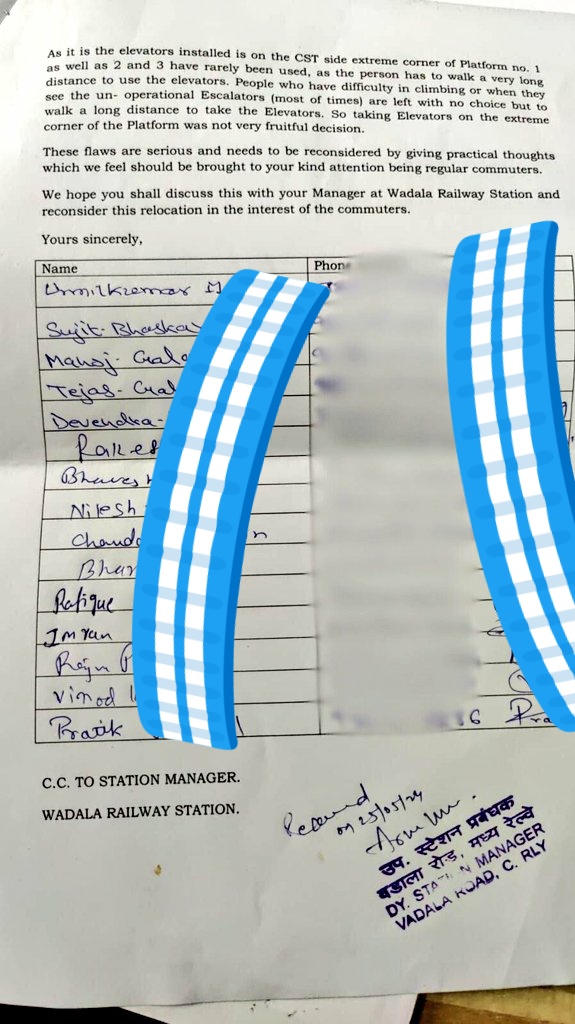 As it is the elevators installed is on the CST side extreme corner of Platform no. 1
as well as 2 and 3 have rarely been used, as the person has to walk a very long
distance to use the elevators. People who have difficulty in climbing or when they
see the un- operational Escalators (most of times) are left with no choice but to
walk a long distance to take the Elevators. So taking Elevators on the extreme
corner of the Platform was not very fruitful decision.
These flaws are serious and needs to be reconsidered by giving practical thoughts
which we feel should be brought to your kind attention being regular commuters.
We hope you shall discuss this with your Manager at Wadala Railway Station and
reconsider this relocation in the interest of the commuters.
Yours sincerely,
Name Phon
Sujit- Bhaskar
Manoj- Gala
Tejas- Gal
Devendra-
Rakes
Bhaves
Nilesh
Chand
Bhar
Rafique
Imran
Raju P
Vinod
Pratik 6 Pra
C.C. TO STATION MANAGER.
WADALA RAILWAY STATION.
Received
on 25/05/24
उप. स्टेशन प्रबंधक
वडाला रोड, मध्य रेल्वे
DY. STATION MANAGER
VADALA ROAD, C. RLY